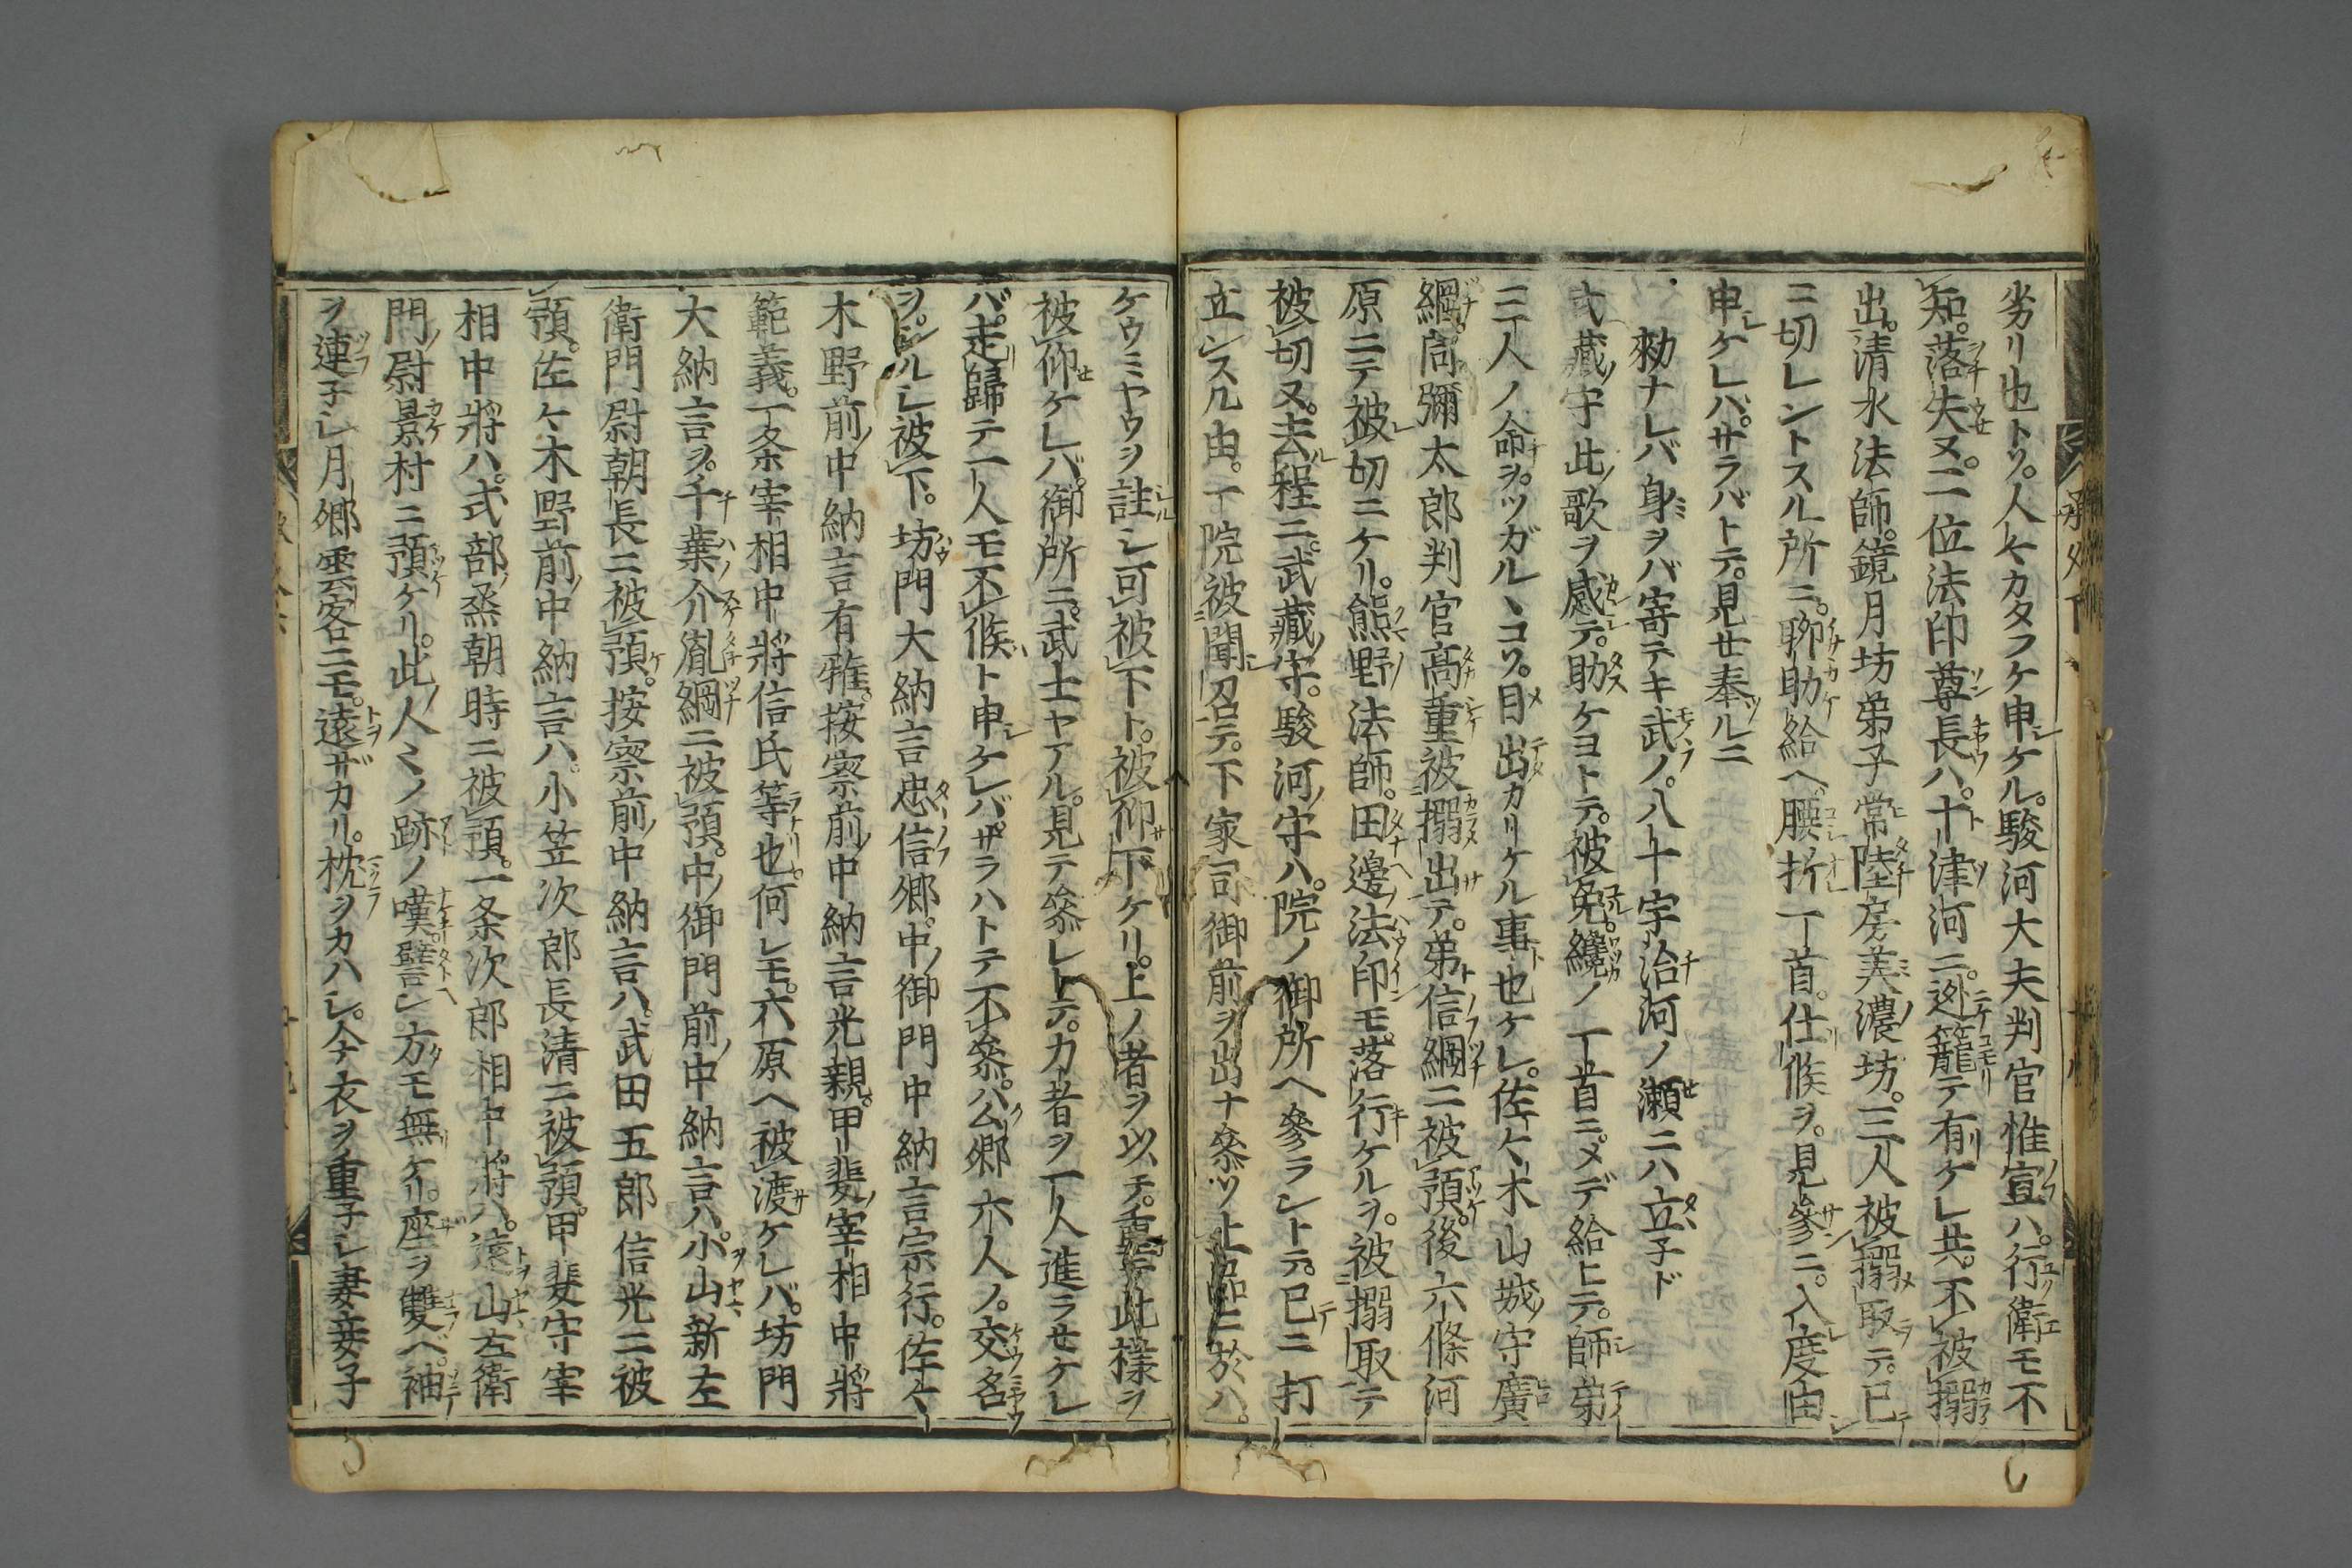 劣リ也トソ。人々カタフケ申ケル。駿河大夫判官惟宣ハ。行衛モ不
知。落失又。二位法印尊長ハ。十津河ニ。迯籠テ有ケレ共。不被搦
出。清水法師。鏡月坊弟子常陸房美濃坊。三人被搦取テ。已
ニ切レントスル所ニ。聊助給ヘ。腰折一首。仕候ヲ。見參ニ。入度由
申ケレバ。サラバトテ。見せ奉ルニ
勅ナレバ身ヲバ寄テキ武ノ。八十宇治河ノ瀬ニハ立子ド
武藏守此歌ヲ感テ。助ケヨトテ。被免。纔ノ一首ニメデ給ヒテ。師弟
三人ノ命ヲ。ツガルヽコソ。目出カリケル事也ケレ。佐々木山城守廣
綱。同彌太郎判官高重被搦出テ。弟信綱ニ被預。後六條河
原ニテ被切ニケリ。熊野法師。田邊法印モ。落行ケルヲ。被搦取テ
被切又。去程ニ。武藏守。駿河守ハ。院ノ御所ヘ參ラントテ。已ニ打
立ンスル由。一院被聞召テ。下家司御前ヲ出ナ參ソ上臈ニ於ハ。
ケウミヤウヲ註シ可被下ト。被仰下ケリ。上ノ者ヲ以テ。重テ此樣ヲ
被仰ケレバ。御所ニ。武士ヤアル。見テ參レトテ。力者ヲ一人進ラせケレ
バ。走歸テ一人モ不候ト申ケレバ。サラハトテ不參。公郷六人ノ。交名
ヲ。シルシ被下。坊門大納言忠信郷。中御門中納言宗行。佐々
木野前中納言有雅。按察前中納言光親。甲斐宰相中將
範義。一条宰相中將信氏等也。何レモ。六原ヘ被渡ケレバ。坊門
大納言ヲ。千葉介胤綱ニ被預。中御門前中納言ハ。小山新左
衛門尉朝長ニ被預。按察前中納言ハ。武田五郎信光ニ被
預。佐々木野前中納言ハ。小笠次郎長清ニ被預。甲斐守宰
相中將ハ。式部丞朝時ニ被預。一条次郎相中將ハ。遠山左衛
門尉景村ニ預ケリ。此人々ノ跡ノ嘆。譬シ方モ無ケリ。座ヲ雙ベ。袖
ヲ連子シ月郷雲客ニモ。遠ザカリ。枕ヲカハシ。衾衣ヲ重子シ妻妾子